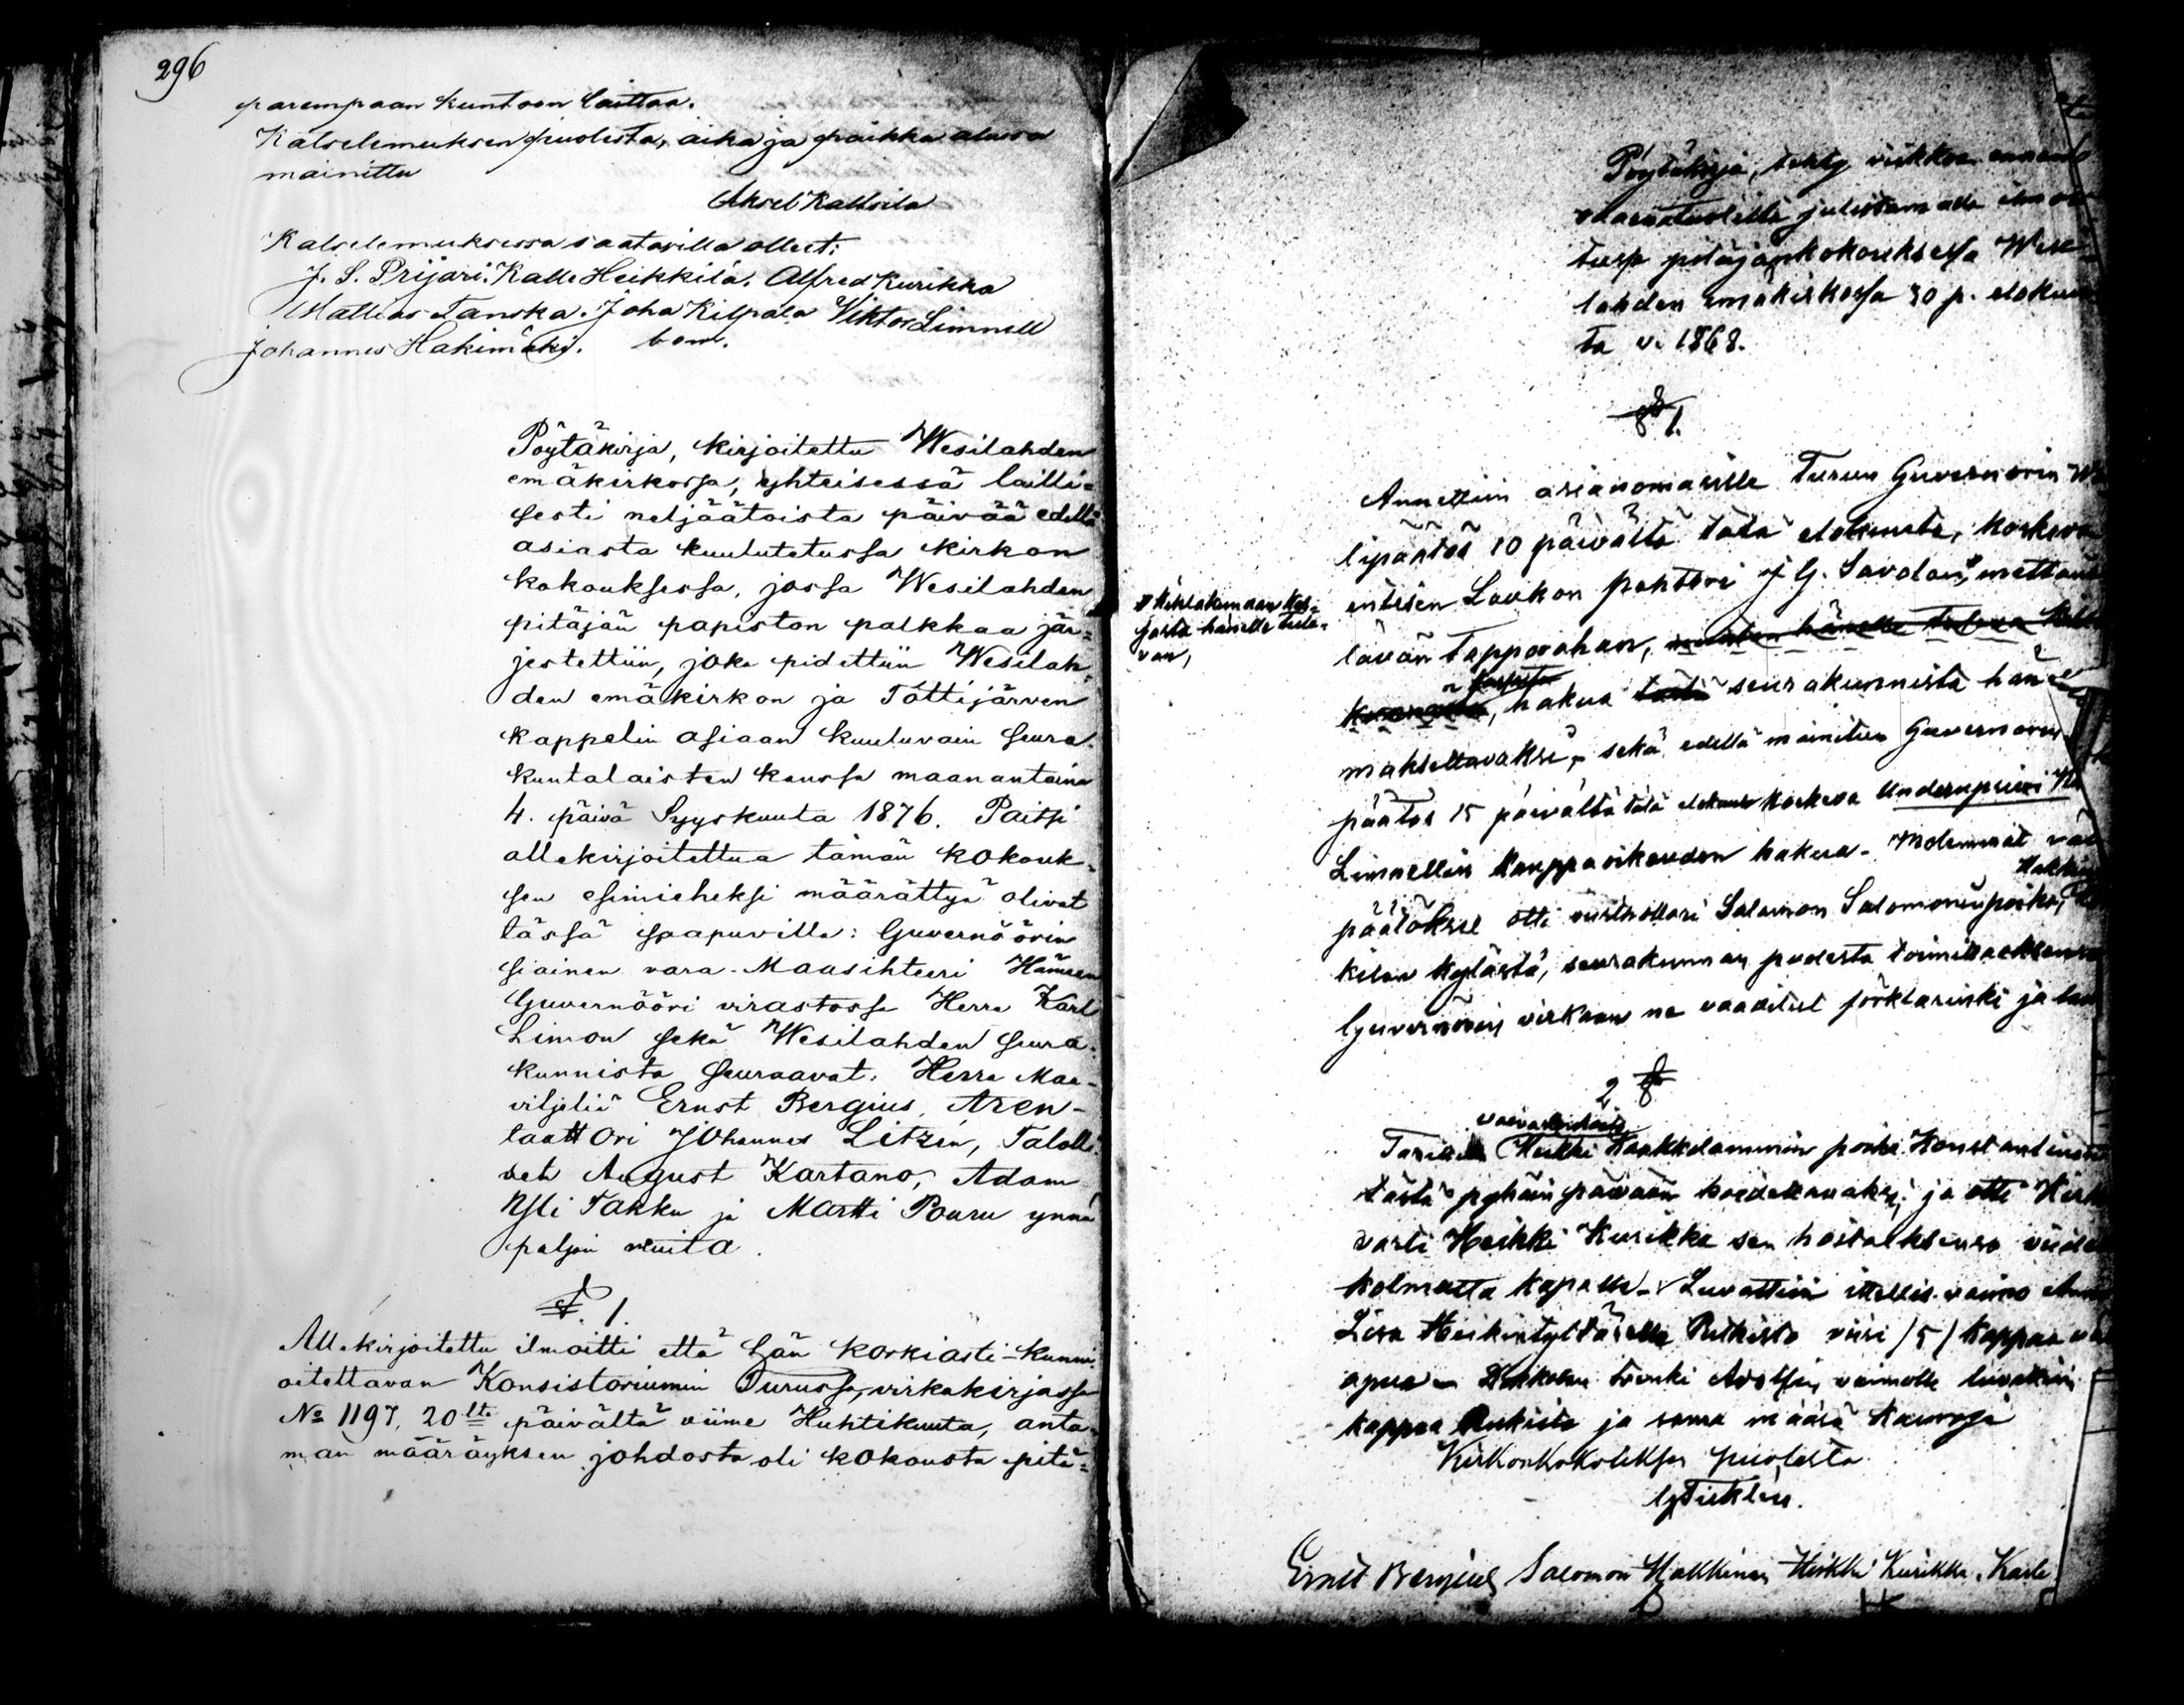 296
parempaan kuntoon laittaa.
Katselemuksen puolesta, aika ja paikka alussa
mainittu
Aksel Kallsila
Katselemuksessa saatavilla olleet:
J. S. Prijari. Kalle Heikkilä. Alfred Kurikka
Mathias Tanska. Joha Kilpala Viktor Limnell
Johannes Hakimäki. bom.
Pöytäkirja, kirjoitettu Wesilahden
emäkirkossa, yhteisessä lailli=
sesti neljäätoista päivää edellä
asiasta kuulutetussa kirkon
kokouksessa, jossa Wesilahden
pitäjän papiston palkkaa jär=
jestettiin, joka pidettiin Wesilah=
den emäkirkon ja Tottijärven
kappelin asiaan kuuluvain seura-
kuntalaisten kanssa maanantaina
4. päivä Syyskuuta 1876. Paitsi
allekirjoitettua tämän kokouk-
sen esimieheksi määrättyä olivat
tässä saapuvilla: Guvernöörin
siainen vara-Maasihteeri Hämeen
Guvernööri virastossa Herra Karl
Limon sekä Wesilahden seura-
kunnista seuraavat: Herra Maa-
viljeliä Ernst Bergius, Aren-
taattori Johannes Litzén, Talolli-
set August Kartano, Adam
Ylli Takku ja Martti Pouru ynnä
paljon muita.
§. 1.
Allekirjoitettu ilmoitti että hän korkiasti-kunni-
oitettavan Konsistoriumin Turussa, virkakirjassa
№ 1197, 20lta päivältä viime Huhtikuuta, anta-
man määräyksen johdosta oli kokousta pitä=
Pöytäkirja, tehty viikkoa ennen
saarnatuolilta julistamada ilmoi
tusa pitäjänkokouksessa Wesi-
lahden emäkirkossa 30 p. elokuu
ta v. 1868.
§ 1.
Annettiin asianomasille Turun Guvernörin Wä
lipäätös 10 päivältä tätä elokuuta, koskeva
entisen Laukon pehtori J G. Savolan, mettäni
# Kihlakunnan kas=
sasta hänelle tule=
van,
tävän Tapporahan, muuten hänelle tuleva
hakua tästä seurakunnista hän
maksettavaksi, sekä edellä mainitun Guvernörin
päätös 15 päivältä tätä elokuuta koskeva Underupseeri
Limnellin kauppaoikeuden hakua. Molemmat
Hakkin
päätökset otti rusthollari Salomon Salomoninpoika,
kilan kylästä, seurakunnan puolesta toimittaaksensa
Guvernörin virkaan ne vaaditut förklarinki ja
2 §
vaivashoito
Tarjottiin Heikki Haakkolamminin poika Konstantinin
tästä pyhäinpäivään hoidettavaksi, ja otti Kirk
varti Heikki Kurikka sen hoitaaksensa viidel
kolmatta kapalla. Luvattiin itsellis vaimo Anna
Lisa Heikintyttärelle Rukista viisi /5/ kappaa
apua – Kukolan trenki Adolfin vaimolle luvattiin
kappaa Rukista ja sama määrä kauroja
Kirkonkokouksen puolesta
G Ticklén.
Ernst Bergius Salomon Hakkinen Heikki Kurikka. Karle